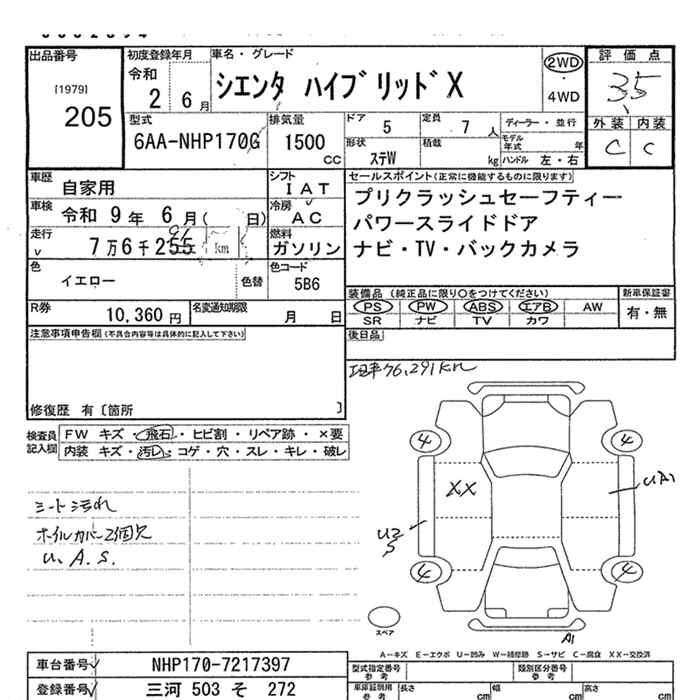 出品番号
[1979]
205
初度登録年月
令和
2 6月
車名・グレード
シエンタ ハイブリッド X
2WD
・
4WD
評価点
3.5
外装 内装
C C
型式
6AA-NHP170G
排気量
1500
cc
ドア 5
定員 7 人
ディーラー・並行
形状
ステW
積載
kg
モデル年式 年
ハンドル 左・右
車歴
自家用
シフト
IAT
車検
令和 9年 6月( 日)
冷房
AC
走行
7万6千255 km
燃料
ガソリン
色
イエロー
色替
色コード
5B6
R券
10,360 円
名変通知期限
月 日
セールスポイント(正常に機能するものに限ります)
プリクラッシュセーフティー
パワースライドドア
ナビ・TV・バックカメラ
装備品 (純正品に限り○をつけてください)
新車保証書
PS PW ABS エアB AW
有・無
SR ナビ TV カワ
後日品
注意事項申告欄(不具合内容等は具体的に記入して下さい)
修復歴 有〔箇所 〕
76,291km
検査員記入欄
FW キズ・飛石・ヒビ割・リペア跡・×要
内装 キズ・汚レ・コゲ・穴・スレ・キレ・破レ
シート汚れ
ホイルカバー2個欠
U. A. S.
4
4
XX
UA1
U2
S
4
4
スペア
A1
A−キズ E−エクボ U−凹み W−補修跡 S−サビ C−腐食 XX−交換済
車台番号 NHP170-7217397
登録番号 三河 503 そ 272
型式指定番号参考
類別区分番号参考
車庫証明用参考
長さ cm
幅 cm
高さ cm